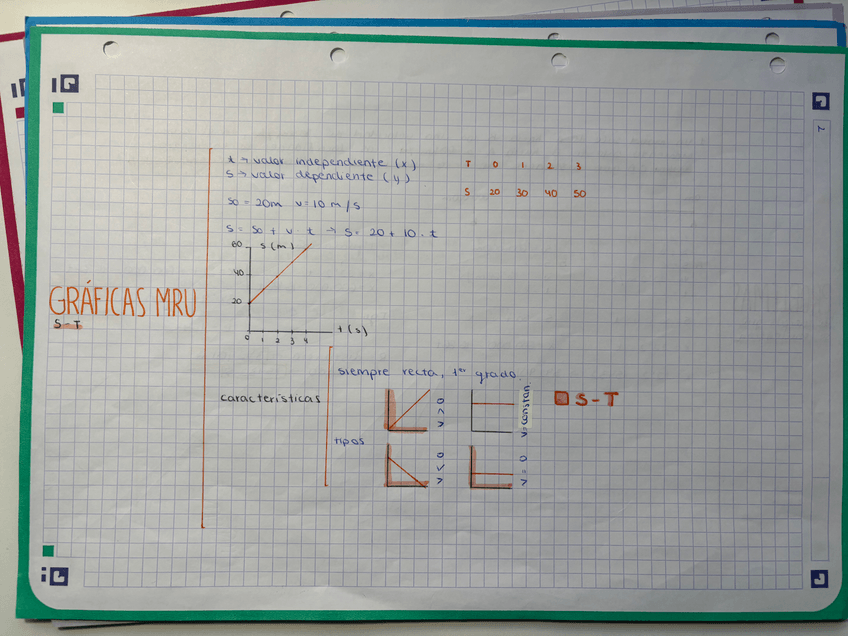 t → valor independiente (x)
s → valor dependiente (y)
T 0 1 2 3
S 20 30 40 50
so = 20m v = 10 m/s
s = so + v t → s = 20 + 10 · t
s (m)
60
40
20
0 1 2 3 4
t (s)
GRÁFICAS MRU
S-T
características
siempre recta, 1er grado.
tipos
v > 0
v = constan.
S-T
v < 0
v = 0
7